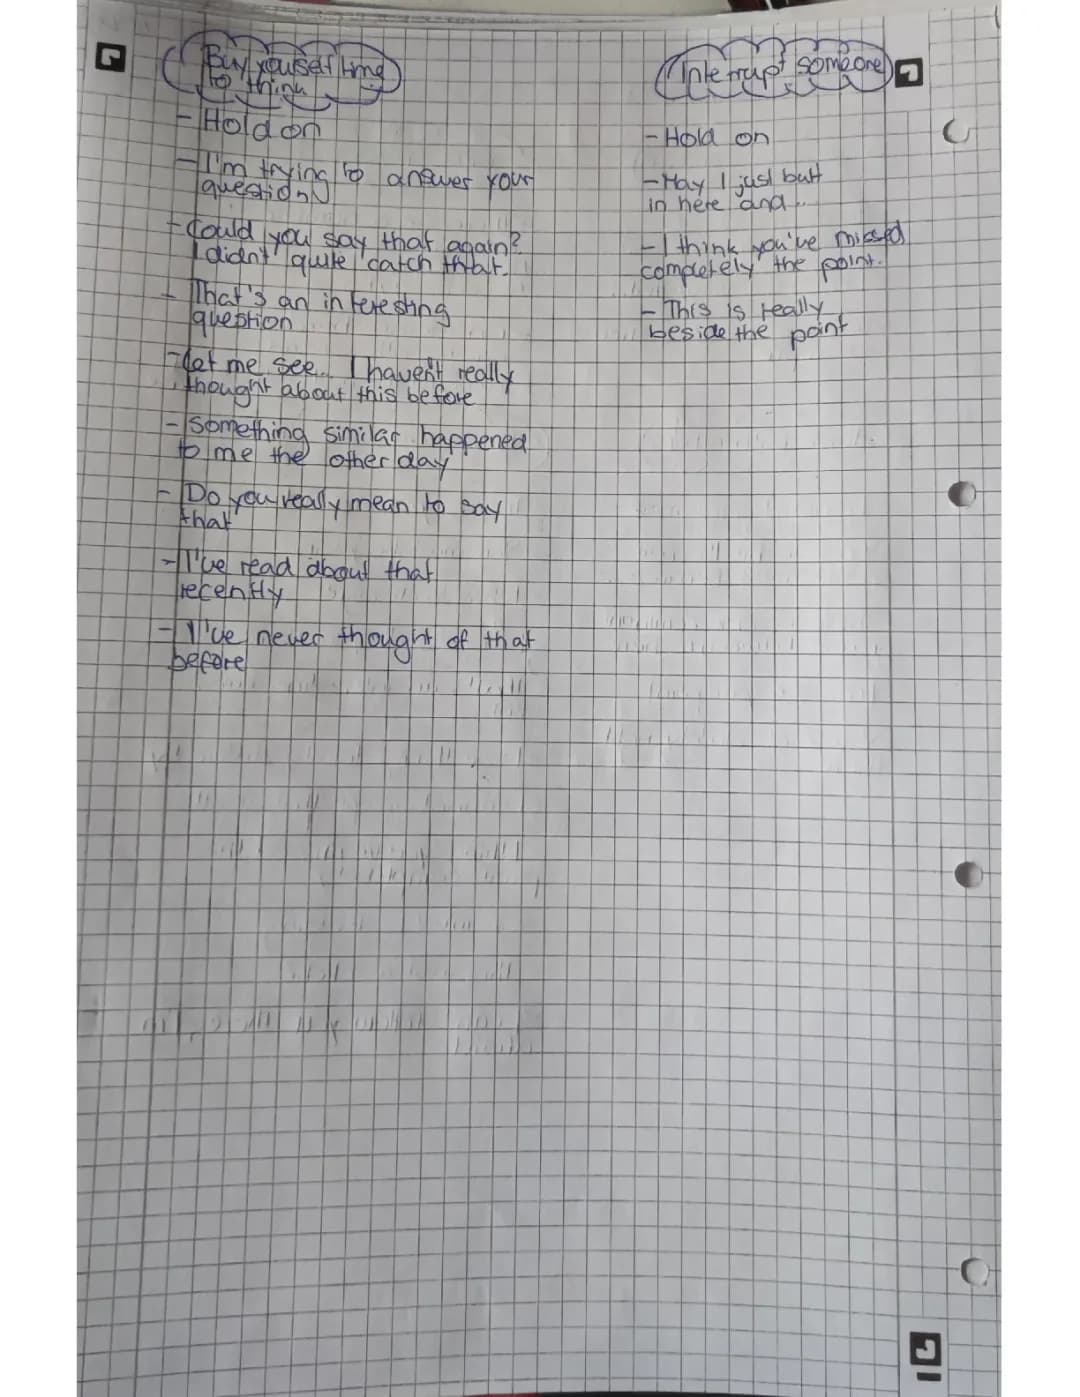 Buy yourself time
to think
- Hold on
- I'm trying to answer your
question
- Could you say that again?
I didn't quite catch that.
- That's an interesting
question
- Let me see... I haven't really
thought about this before
- Something similar happened
to me the other day
- Do you really mean to say
that
- I've read about that
recently
- I've never thought of that
before
Interrupt someone
- Hold on
- May I just butt
in here and...
- I think you've missed
completely the point.
- This is really
beside the point